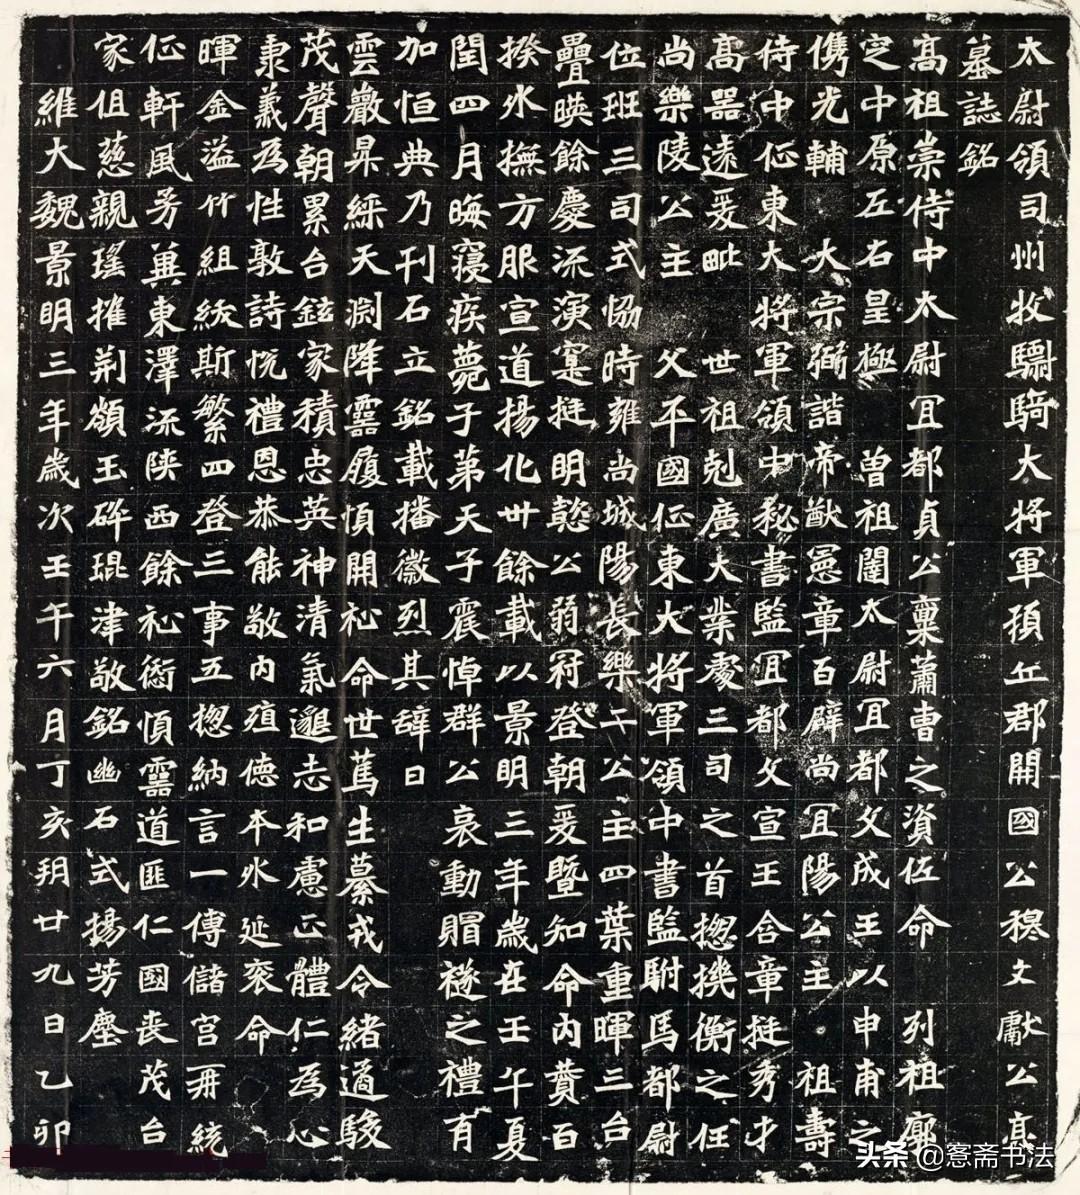 太尉領司州牧驃騎大將軍頓丘郡開國公穆文獻公亮
墓誌銘
高祖崇侍中太尉冝都貞公稟蕭曺之資佐命 列祖廓
定中原左右皇極 曾祖闥太尉冝都文成王以申甫之
儁光輔 大宗弼諧帝猷憲章百辟尚冝陽公主 祖壽
侍中征東大將軍領中秘書監冝都文宣王含章挺秀才
高器遠爰毗 世祖剋廣大業處三司之首摠機衡之任
尚樂陵公主 父平國征東大將軍領中書監駙馬都尉
位班三司式協時雍尚城陽長樂二公主四葉重暉三台
疊暎餘慶流演寔挺明懿公弱冠登朝爰曁知命內贊百
揆外撫方服宣道揚化卅餘載以景明三年歲在壬午夏
閏四月晦寢疾薨于第天子震悼群公哀動賵襚之禮有
加恒典乃刊石立銘載播徽烈其辭曰
雲巖昇綵天淵降靈履順開祉命世篤生纂戎令緒適駿
茂聲朝累台鉉家積忠英神清氣邈志和慮正體仁爲心
秉義爲性敦詩悅禮恩恭能敬內殖德本外延衮命
暉金溢竹組紱斯繁四登三事五摠納言一傅儲宮再統
征軒風芳冀東澤流陝西餘祉銜順靈道匪仁國喪茂台
家徂慈親瑤摧荊頞玉碎琨津敬銘幽石式揚芳塵
維大魏景明三年歲次壬午六月丁亥朔廿九日乙卯
头条 @愙斋书法